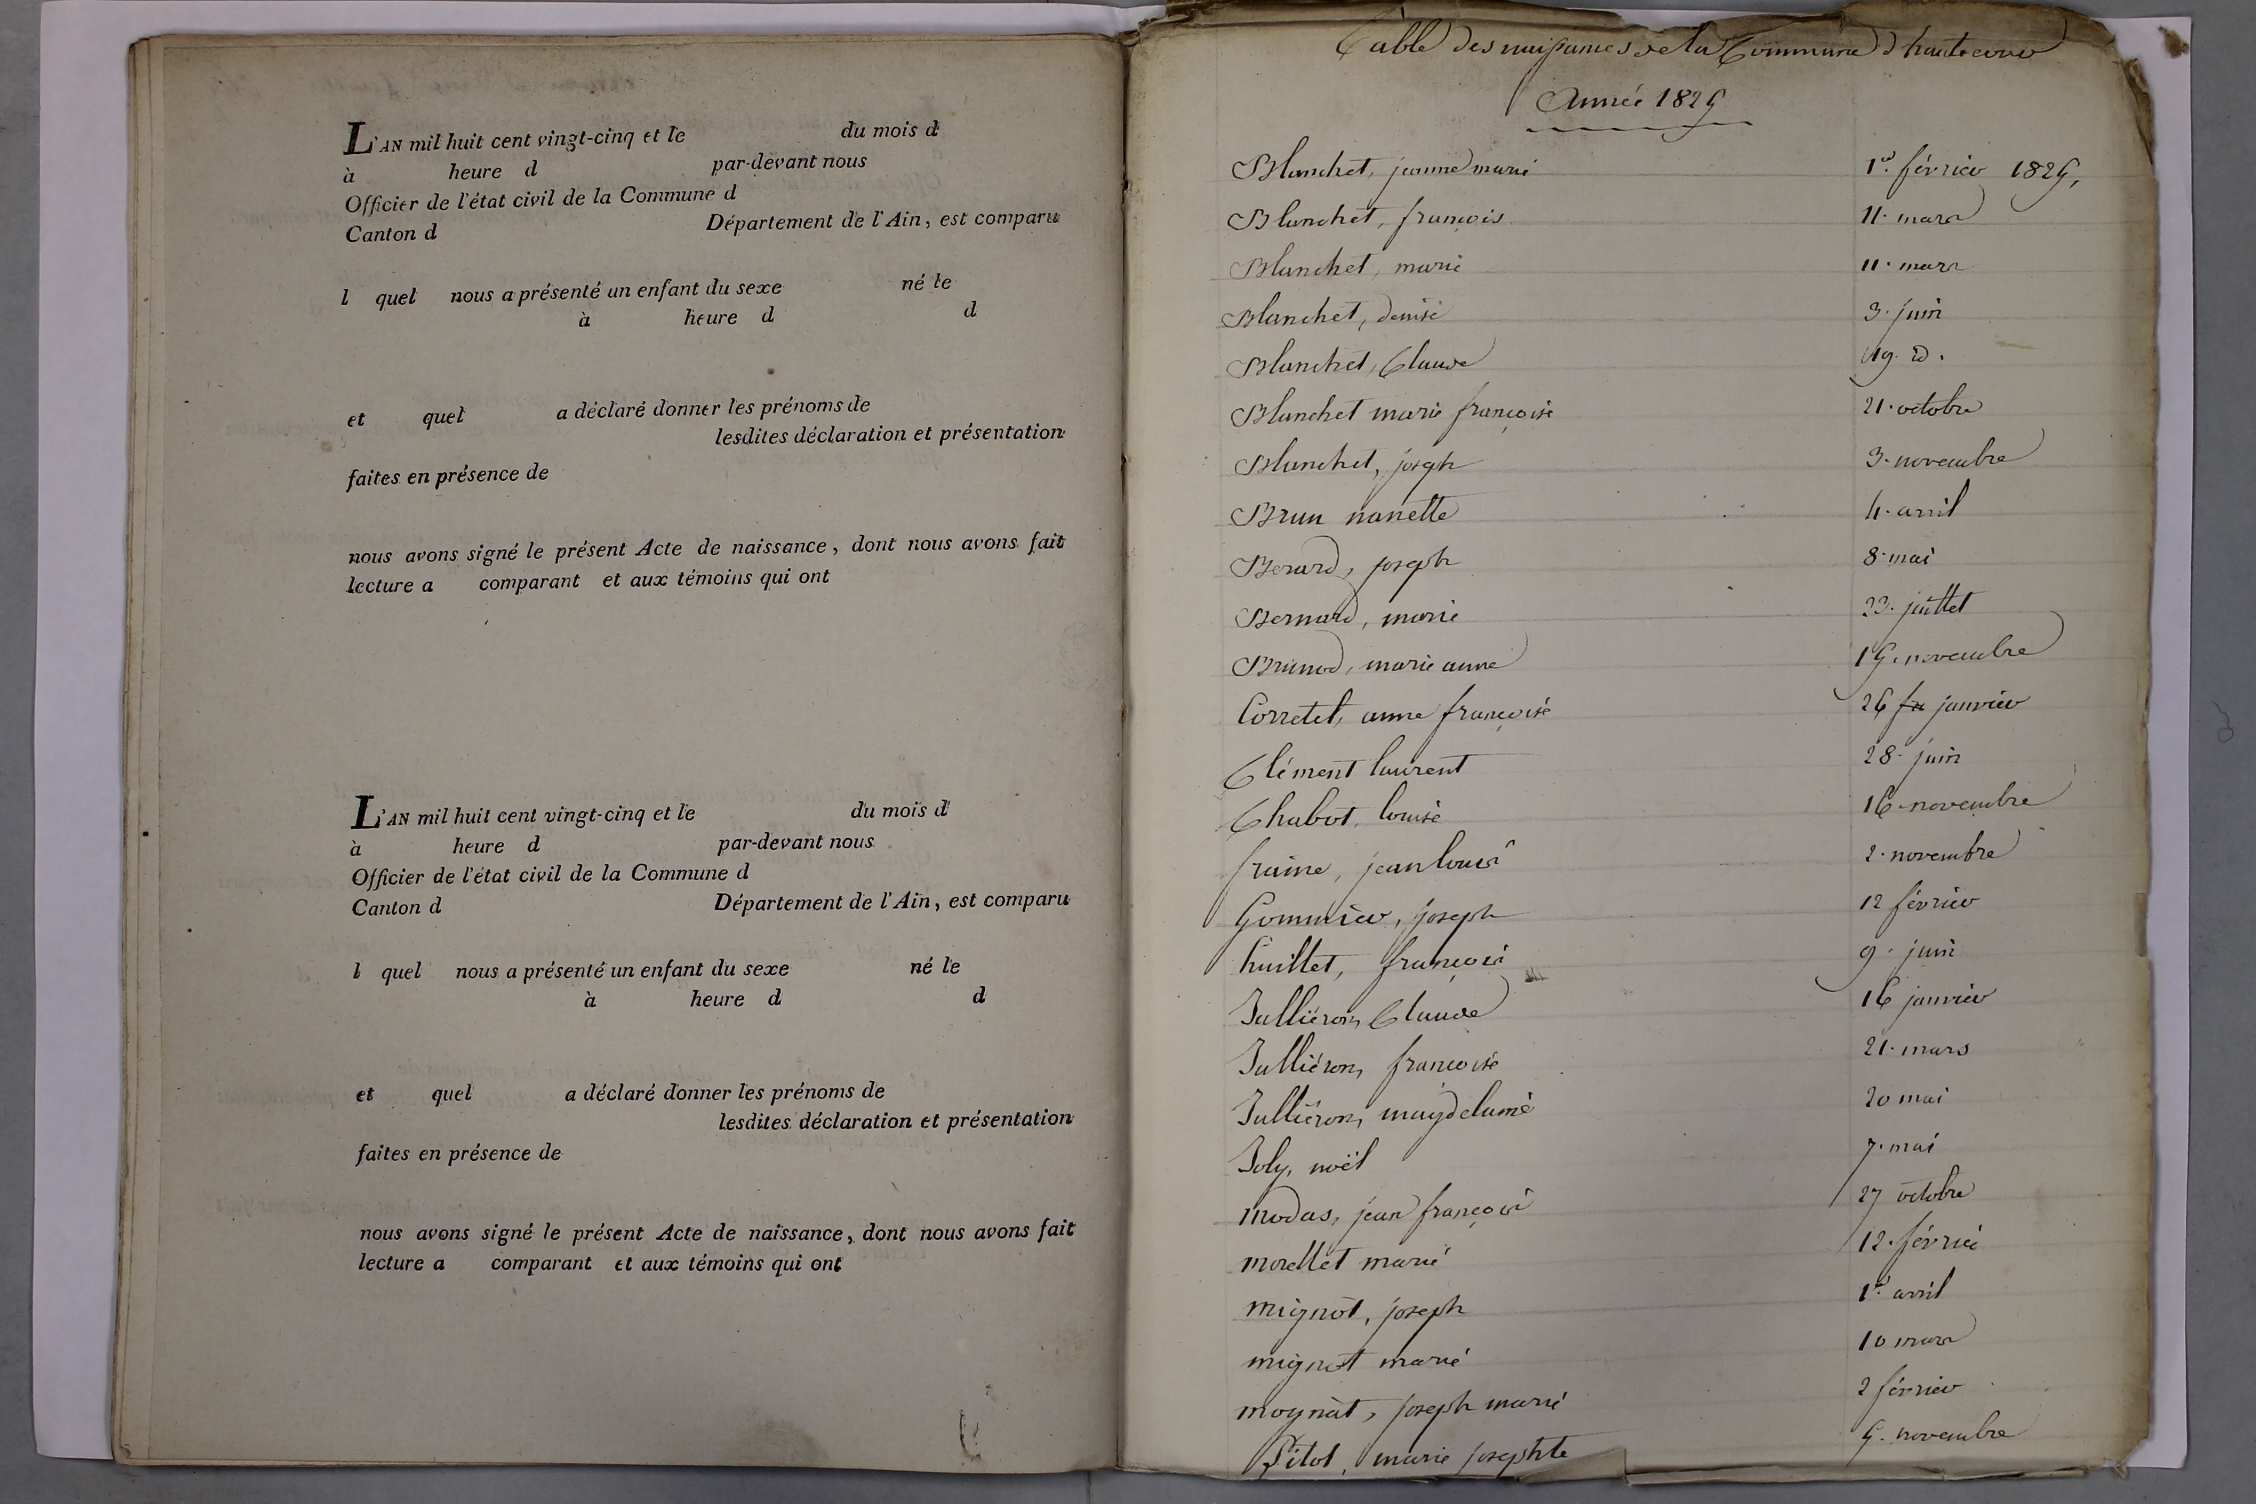 L'AN mil huit cent vingt-cinq et le du mois d
à heure d par-devant nous
Officier de l'état civil de la Commune d
Canton d Département de l'Ain, est comparu
l quel nous a présenté un enfant du sexe né le
à heure d d
et quel a déclaré donner les prénoms de
lesdites déclaration et présentation
faites en présence de
nous avons signé le présent Acte de naissance, dont nous avons fait
lecture a comparant et aux témoins qui ont
L'AN mil huit cent vingt-cinq et le du mois d
à heure d par-devant nous
Officier de l'état civil de la Commune d
Canton d Département de l'Ain, est comparu
l quel nous a présenté un enfant du sexe né le
à heure d d
et quel a déclaré donner les prénoms de
lesdites déclaration et présentation
faites en présence de
nous avons signé le présent Acte de naissance, dont nous avons fait
lecture a comparant et aux témoins qui ont
Table des naissances de la Commune d'hautecour
Année 1825
Blanchet, jeanne marie 1er février 1825,
Blanchet, françois 11. mars
Blanchet, marie 11. mars
Blanchet, denise 3. juin
Blanchet, Claude 19. d.
Blanchet marie françoise 21. octobre
Blanchet, joseph 3. novembre
Brun nanette 4. avril
Berard, joseph 8. mai
Bernard, marie 23. juillet
Brunod, marie anne 15. novembre
Corretel, anne françoise 26 janvier
Clément laurent 28. juin
Chabot, louise 16. novembre
fraine, jean louis 2. novembre
Gommier, joseph 12 février
huillet, françois 9. juin
Jullièron, Claude 16 janvier
Jullièron, françoise 21. mars
Jullièron, magdelaine 20 mai
Joly, noël 7. mai
modas, jean françois 27 octobre
morellet marie 12. février
mignot, joseph 1er avril
mignot marie 10 mars
moynat, joseph marie 2 février
Pitot, marie josephte 5. novembre